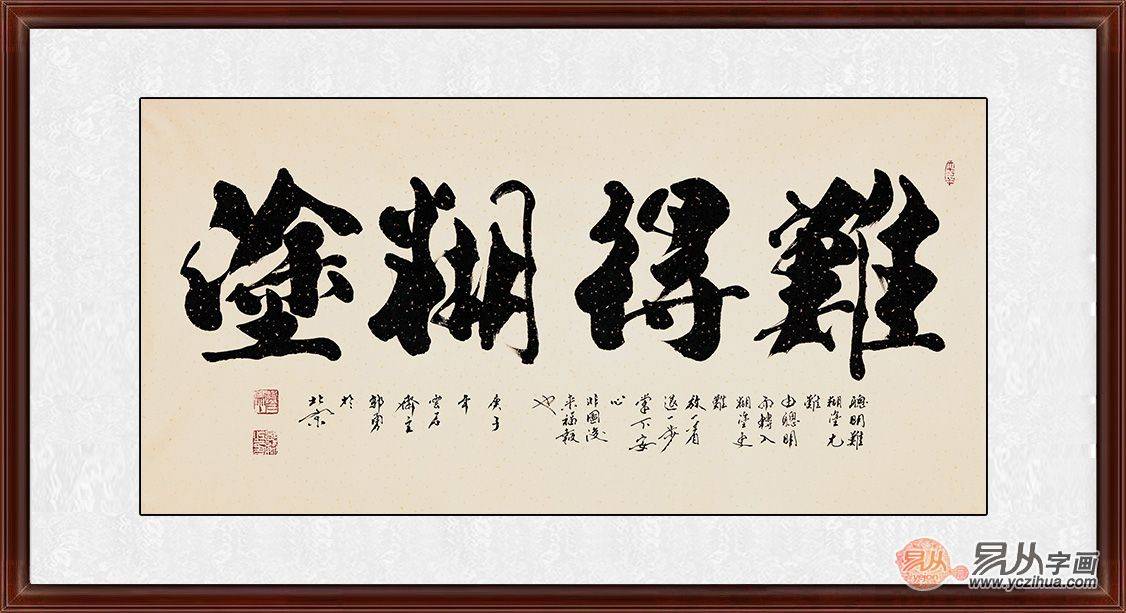 難得糊塗
聰明難
糊塗尤
難
由聰明
而轉入
糊塗更
難
放一着
退一步
當下安
心
非圖後
来福報
也
庚子
年
雲居
齋主
郭勇
於
北京
易从
易从字画
www.yczihua.com